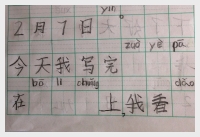 yīn
2月7日
zuò yè pā
今天我写完
bā li chuáng dào
在 上,我看